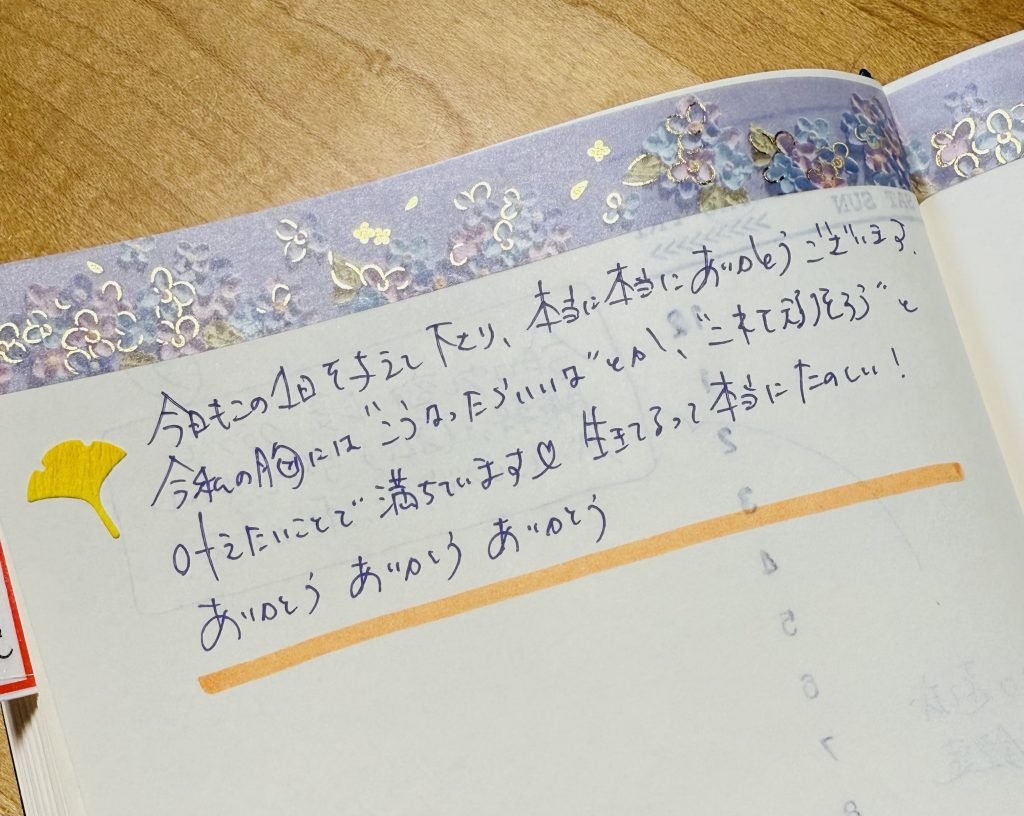 今日もこの1日を与えて下さり、本当に本当にありがとうございます.
今私の胸には"こうなったらいいな"とか、"これて"と
叶えたいことで満ちています♡ 生きてるって本当にたのしい!
ありがとう ありがとう ありがとう
2
3
4
5
6
7
8